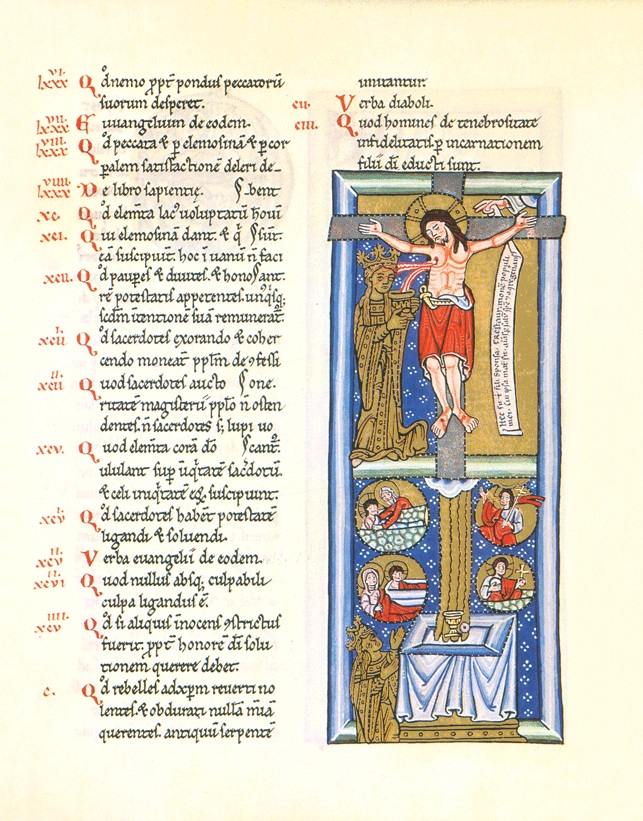 lxxxvi. Qđ nemo ꝓpt̅ pondus peccatorū
suorum desperet.
lxxxvii. Euuangelium de eodem.
lxxxviii. Qđ peccata & ꝑ elemosinā & ꝑ cor
ꝑalem satisfactionē deleri de-
lxxxviiii. De libro sapientię. ſ. bent
xc. Qđ elem̅ta lac̅ uoluptatū homi
xci. Qui elemosinā dant. & q̇ s̅ sūt.
eā suscipiunt. hoc i uanū n̄ faci
xcii. Qđ paupes & diuites. & honos ant.
rē potestatis appetentes. unq̇sq;
scđm intentione suā remunerat̅.
xciii. Qđ sacerdotes exorando & coher
cendo moneant pplm̅ de ꝯfessi
xciiii. Quod sacerdotes aucto ſ one.
ritatē magisterii pplo n̄ osten
dentes. n̄ sacerdotes s; lupi uo
xcv. Quod elem̅ta corā do ſ cant̅.
ululant sup̅ iniq̇tate sac̅dotū.
& celi iniq̇tatē eoꝝ suscipiunt.
xcvi. Qđ sacerdotes habent potestatē
ligandi & soluendi.
xcvii. Verba euangelii de eodem.
xcviii. Quod nullus absq; culpabili
culpa ligandus ē.
xcviiii. Qđ si aliquis inocens ꝯstrictus
fuerit. ꝓpt̅ honorē di̅ solu
tionem querere debet.
c. Qđ rebelles ad xpm reuerti no
lentes. & obdurati nullā mi̅am
querentes. antiquū serpente
imitantur.
cii. Verba diaboli.
ciii. Quod homines de tenebrositate
infidelitatis ꝑ incarnationem
filii di̅ educti sunt.
Hec fili sponsa populi
mei. Cui ipsa mat̅ sit. regenerans